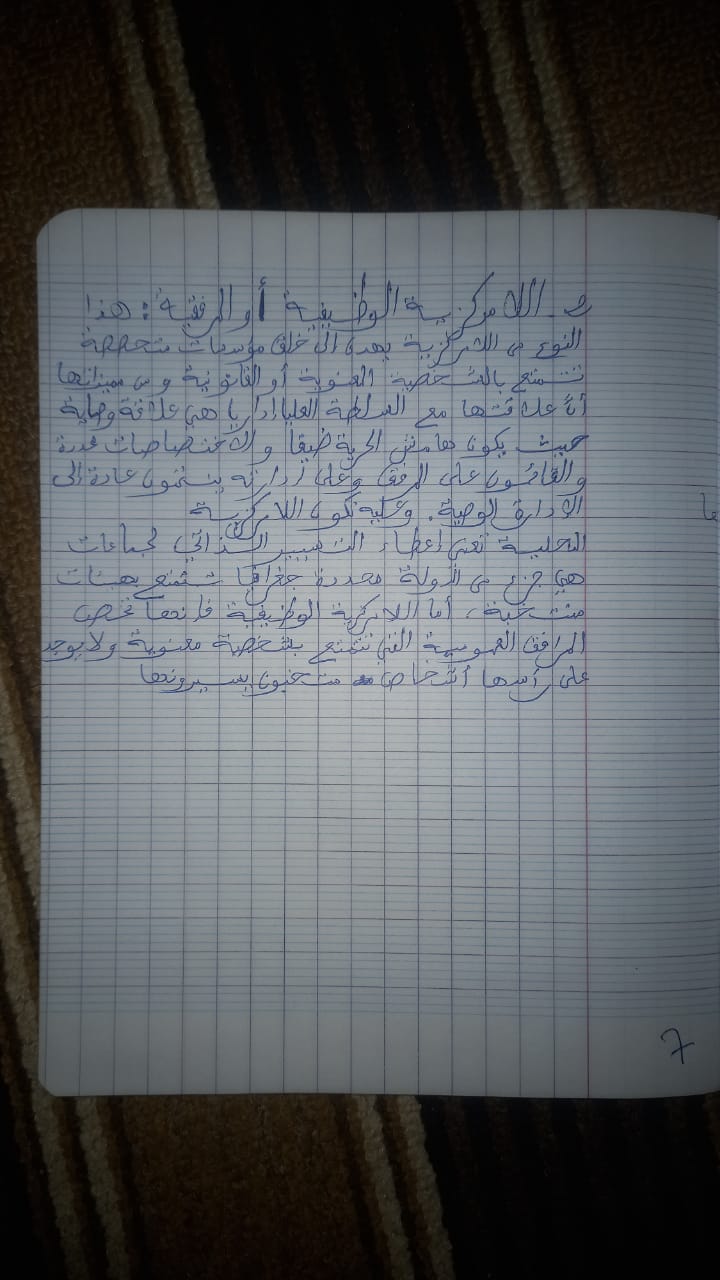 و_ اللامركزية الوظيفية أو المرفقية: هذا
النوع من اللامركزية يهدف الى خلق مؤسسات متخصصة
تتمتع بالشخصية المعنوية أو القانونية ومن مميزاتها
أن علاقتها مع السلطة العليا إداريا هي علاقة وصاية
حيث يكون هامش الحرية ضيقا والاختصاصات محددة
والقائمون على المرفق وعلى إدارته ينتمون عادة إلى
الادارة الوصية. وعليه تكون اللامركزية
المحلية تعني إعطاء التسيير الذاتي لجماعات
هي جزء من الدولة محددة جغرافيا تتمتع بهيئات
منتخبة، أما اللامركزية الوظيفية فإنها تخص
المرافق العمومية التي تتمتع بشخصية معنوية ولا يوجد
على رأسها أشخاص منتخبون يسيرونها
ها
7